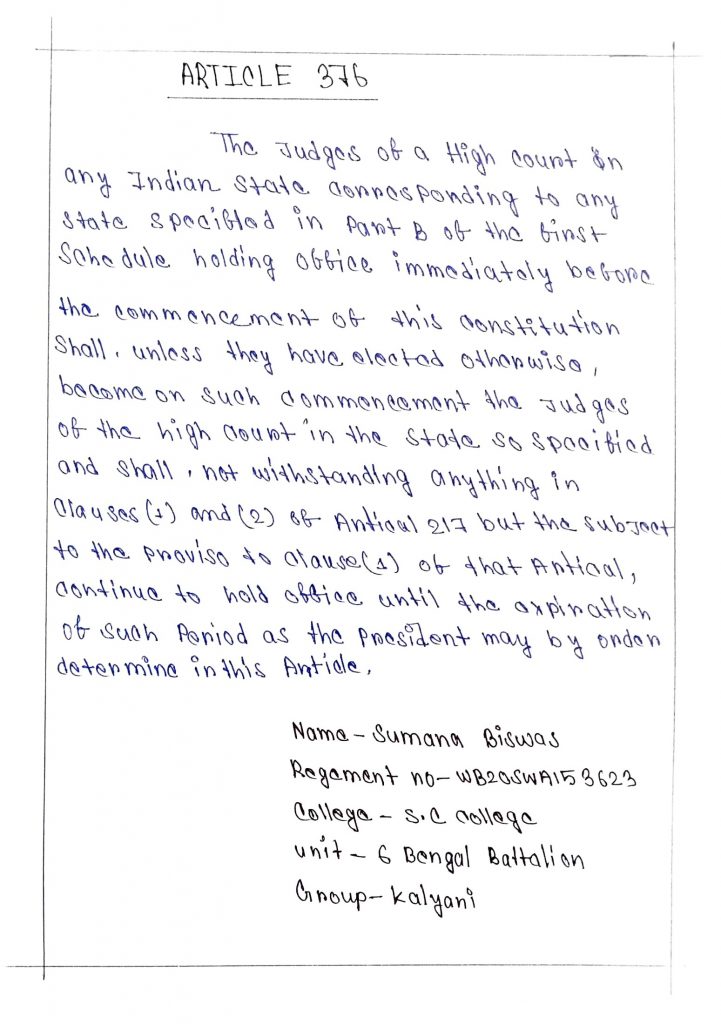 ARTICLE 376
The Judges of a High court in
any Indian State corresponding to any
State specified in Part B of the first
Schedule holding office immediately before
the commencement of this constitution
Shall, unless they have elected otherwise,
become on such commencement the Judges
of the high court in the State so specified
and shall, not withstanding anything in
Clauses (1) and (2) of Artical 217 but the subject
to the proviso to clause(1) of that Artical,
continue to hold office until the expiration
of such Period as the President may by order
determine in this Article.
Name - Sumana Biswas
Regament no - WB20SWA153623
College - S.C college
unit - 6 Bengal Battalion
Group - Kalyani